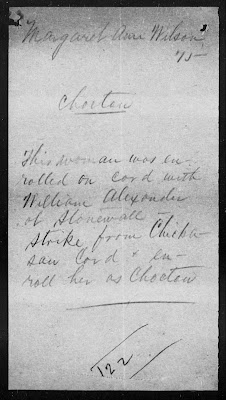 Margaret Ann Wilson
75
Chocton
This woman was en-
rolled on card with
William Alexander
of Stonewall
Strike from Chicka-
saw Card & en-
roll her as Choctow
122